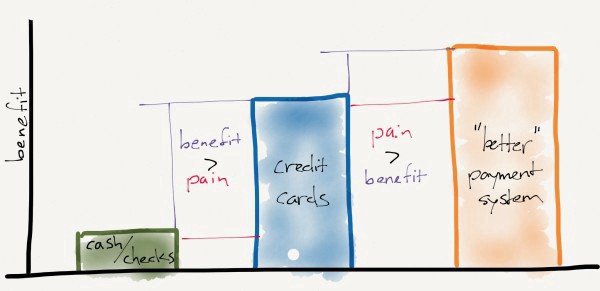 benefit
cash/
checks
benefit
>
pain
credit
cards
pain
>
benefit
"better"
payment
system